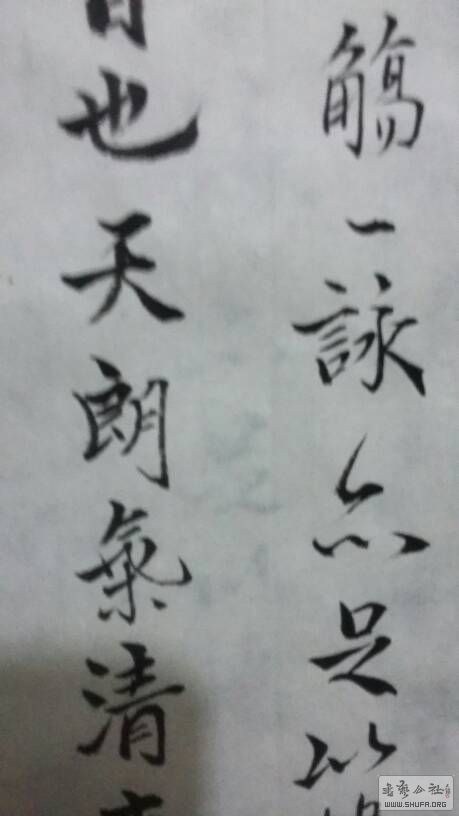 觴一詠亦足以暢
日也天朗氣清惠
書藝公社
WWW.SHUFA.ORG